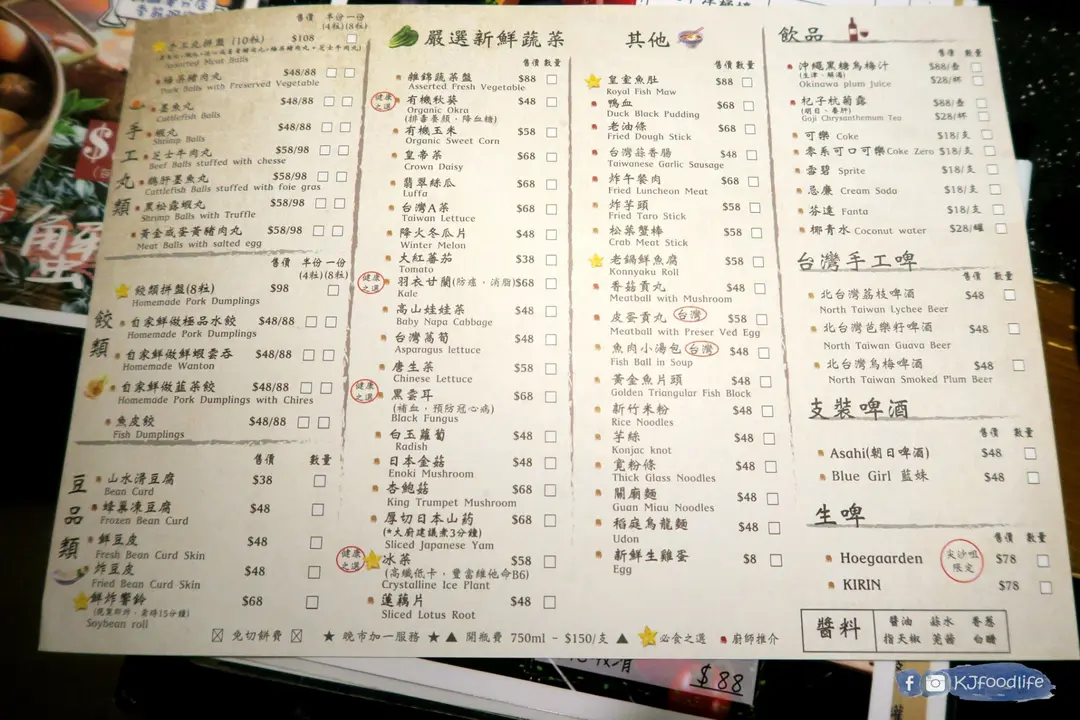 售價 半份 一份
(4粒)(8粒)
手工丸拼盤 (10粒) $108
Assorted Meat Balls
梅菜豬肉丸 $48/88
Pork Balls with Preserved Vegetable
墨魚丸 $48/88
Cuttlefish Balls
蝦丸 $48/88
Shrimp Balls
芝士牛肉丸 $58/98
Beef Balls stuffed with cheese
鵝肝墨魚丸 $58/98
Cuttlefish Balls stuffed with foie gras
黑松露蝦丸 $58/98
Shrimp Balls with Truffle
黃金咸蛋黃豬肉丸 $58/98
Meat Balls with salted egg
手工丸類
售價 半份 一份
(4粒)(8粒)
餃類拼盤(8粒) $98
Homemade Pork Dumplings
自家鮮做極品水餃 $48/88
Homemade Pork Dumplings
自家鮮做鮮蝦雲吞 $48/88
Homemade Wanton
自家鮮做韮菜餃 $48/88
Homemade Pork Dumplings with Chires
魚皮餃 $48/88
Fish Dumplings
餃類
售價 數量
山水滑豆腐 $38
Bean Curd
蜂巢凍豆腐 $48
Frozen Bean Curd
鮮豆皮 $48
Fresh Bean Curd Skin
炸豆皮 $48
Fried Bean Curd Skin
鮮炸響鈴 $68
(現製即炸，需時15分鐘)
Soybean roll
豆品類
嚴選新鮮蔬菜
售價 數量
雜錦蔬菜盤 $88
Assorted Fresh Vegetable
健康之選
有機秋葵 $48
Organic Okra
(排毒養顏，降血糖)
有機玉米 $58
Organic Sweet Corn
皇帝菜 $68
Crown Daisy
翡翠絲瓜 $68
Luffa
台灣A菜 $68
Taiwan Lettuce
降火冬瓜片 $48
Winter Melon
大紅蕃茄 $38
Tomato
健康之選
羽衣甘蘭(防癌，消脂) $68
Kale
高山娃娃菜 $48
Baby Napa Cabbage
台灣萵筍 $48
Asparagus lettuce
唐生菜 $58
Chinese Lettuce
健康之選
黑雲耳 $68
(補血，預防冠心病)
Black Fungus
白玉蘿蔔 $48
Radish
日本金菇 $48
Enoki Mushroom
杏鮑菇 $68
King Trumpet Mushroom
厚切日本山葯 $68
(*大廚建議煮3分鐘)
Sliced Japanese Yam
健康之選
冰菜 $58
(高纖低卡，豐富維他命B6)
Crystalline Ice Plant
蓮藕片 $48
Sliced Lotus Root
其他
售價 數量
皇室魚肚 $88
Royal Fish Maw
鴨血 $68
Duck Black Pudding
老油條 $68
Fried Dough Stick
台灣蒜香腸 $48
Taiwanese Garlic Sausage
炸午餐肉 $68
Fried Luncheon Meat
炸芋頭 $58
Fried Taro Stick
松葉蟹棒 $58
Crab Meat Stick
老鍋鮮魚腐 $58
Konnyaku Roll
香菇貢丸 $48
Meatball with Mushroom
皮蛋貢丸 台灣 $58
Meatball with Preser Ved Egg
魚肉小湯包 台灣 $48
Fish Ball in Soup
黃金魚片頭 $48
Golden Triangular Fish Block
新竹米粉 $48
Rice Noodles
芋絲 $48
Konjac knot
寬粉條 $48
Thick Glass Noodles
關廟麵 $48
Guan Miau Noodles
稻庭烏龍麵 $48
Udon
新鮮生雞蛋 $8
Egg
飲品
售價 數量
沖繩黑糖烏梅汁 $88/壺
(生津、解渴) $28/杯
Okinawa plum Juice
杞子杭菊露 $88/壺
(明目、養肝) $28/杯
Goji Chrysanthemum Tea
可樂 Coke $18/支
零系可口可樂 Coke Zero $18/支
雪碧 Sprite $18/支
忌廉 Cream Soda $18/支
芬達 Fanta $18/支
椰青水 Coconut water $28/罐
台灣手工啤
售價 數量
北台灣荔枝啤酒 $48
North Taiwan Lychee Beer
北台灣芭樂籽啤酒 $48
North Taiwan Guava Beer
北台灣烏梅啤酒 $48
North Taiwan Smoked Plum Beer
支裝啤酒
售價 數量
Asahi(朝日啤酒) $48
Blue Girl 藍妹 $48
生啤
售價 數量
Hoegaarden $78
尖沙咀限定
KIRIN $78
醬料
醬油 蒜水 香蔥
指天椒 芫茜 白醋
免切餅費 ★ 晚市加一服務 ★ ▲ 開瓶費 750ml - $150/支 ▲ 必食之選 廚師推介
$88
KJfoodlife